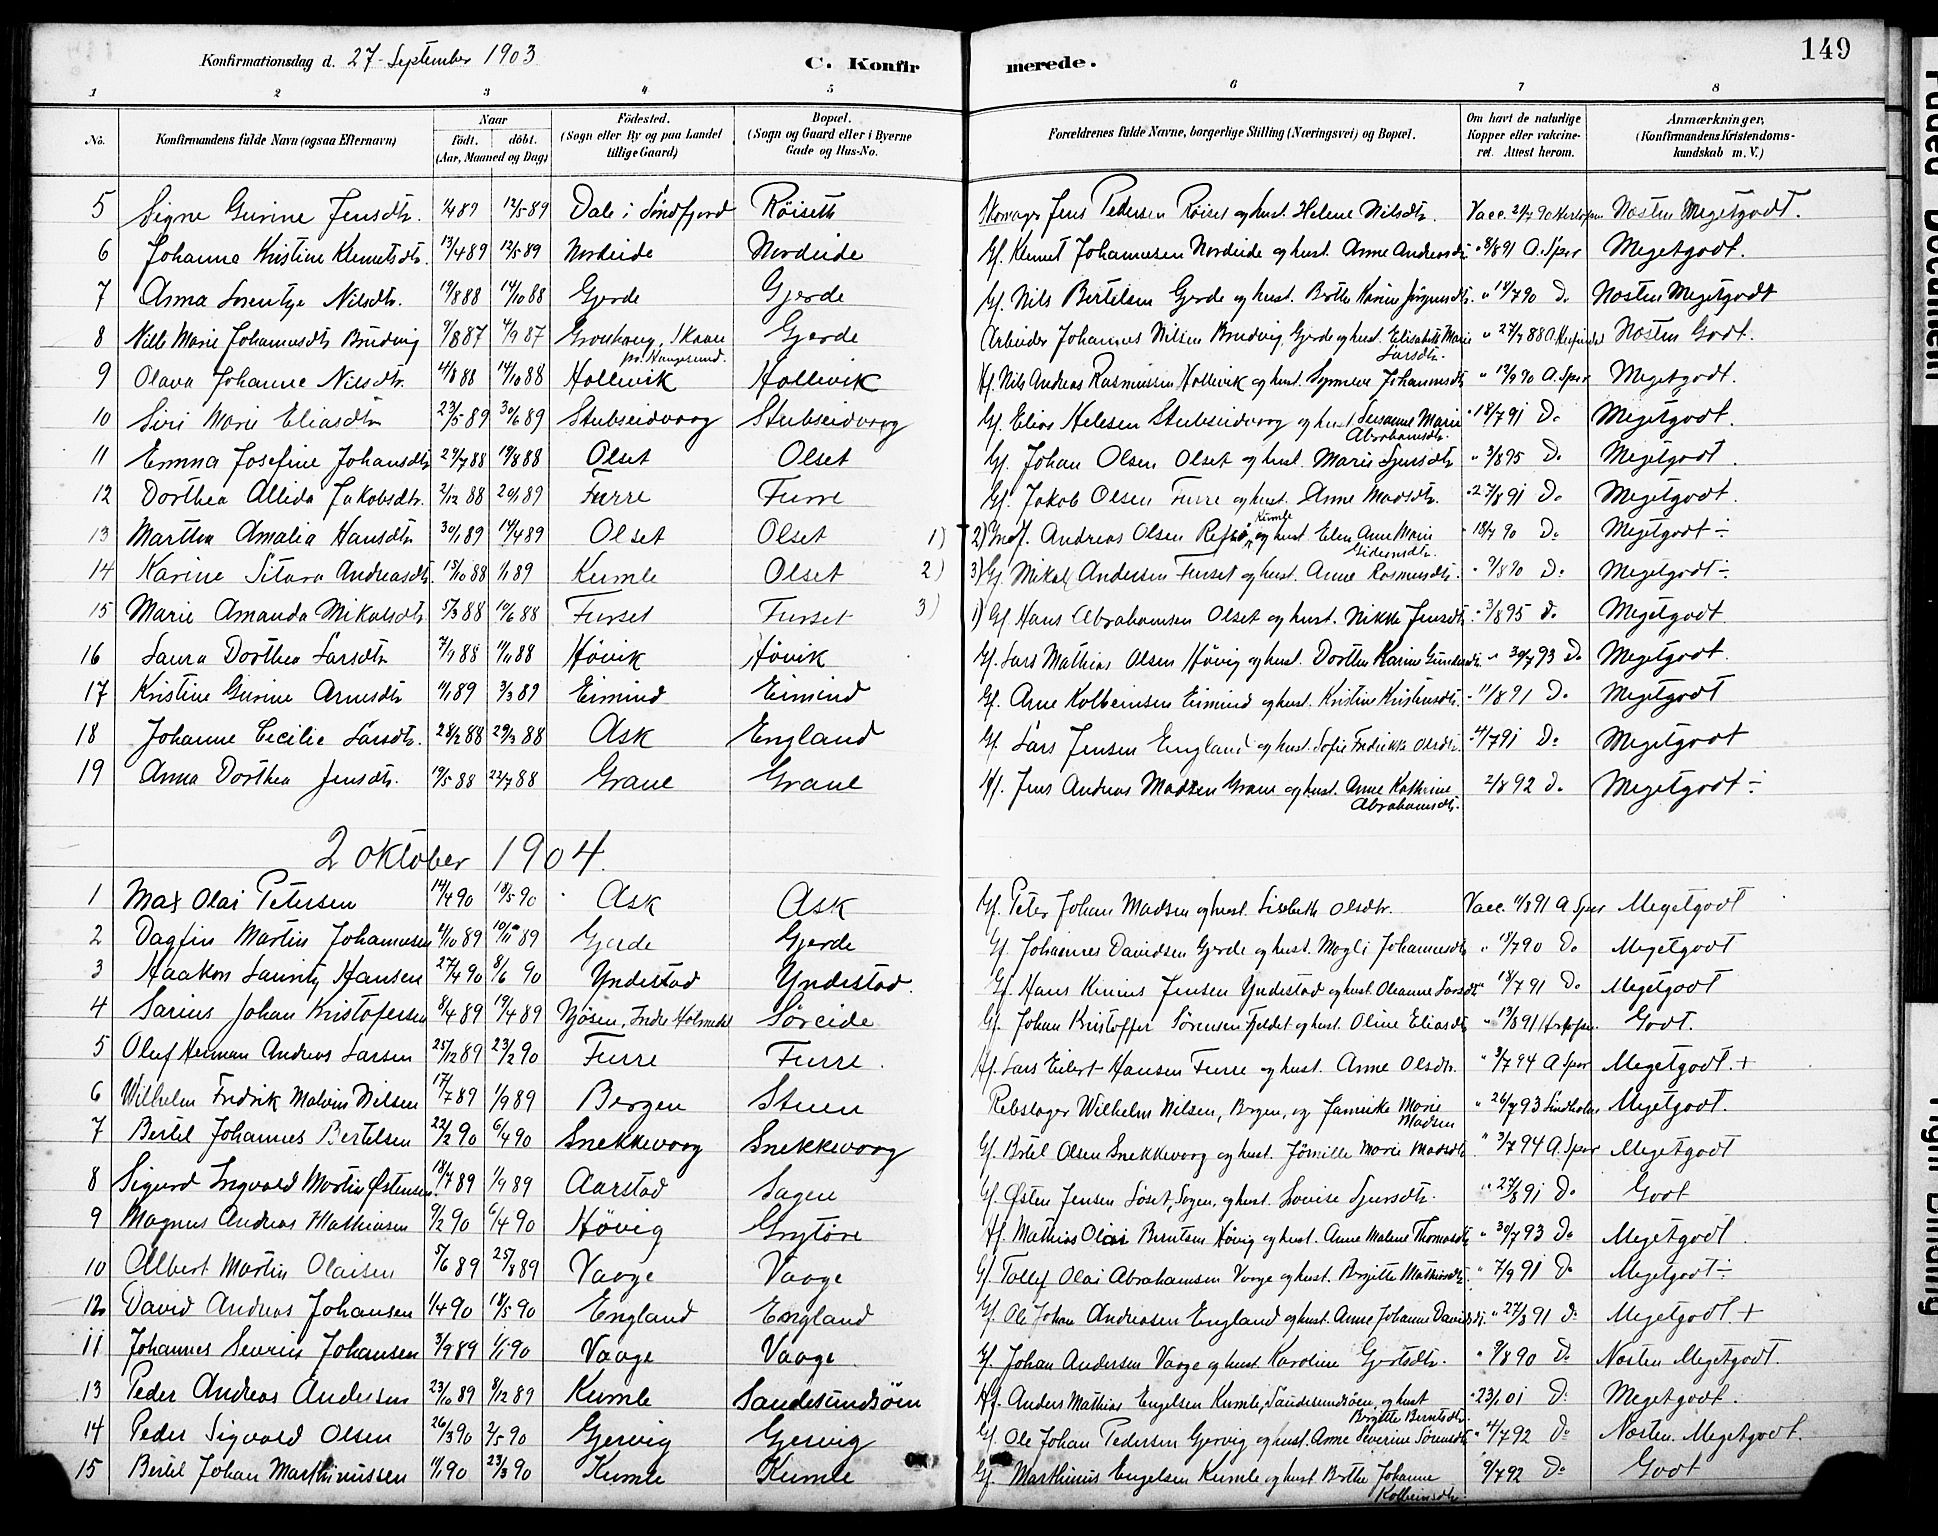 149
Konfirmationsdag d. 27 September 1903 C. Konfirmerede.
1 2 3 4 5 6 7 8
No. Konfirmandens fulde Navn (ogsaa Efternavn) Naar Födt. döbt. (Aar, Maaned og Dag) Födested. (Sogn eller By og paa Landet tillige Gaard) Bopæl. (Sogn og Gaard eller i Byerne Gade og Hus-No. Forældrenes fulde Navne, borgerlige Stilling (Næringsvei) og Bopæl. Om havt de naturlige Kopper eller vakcineret. Attest herom. Anmærkninger, (Konfirmandens Kristendomskundskab m. V.)
5 Signe Gurine Jensdtr. 1/4 89 12/5 89 Dale i Söndfjord Röiseth Jens Pedersen Röiset og hust. Helene Nilsdtr. Vacc. 2/7 90 Næsten Megetgodt.
6 Johanna Kristine Klemetsdtr. 13/4 89 12/5 89 Nordeide Nordeide Gf. Klemet Johannesen Nordeide og hust. Anne Andreasdtr " 8/8 91 A. Spor Megetgodt.
7 Anna Lorentze Nilsdtr. 19/8 88 14/10 88 Gjerde Gjerde Gf. Nils Bertelsen Gjerde og hust. Brthe Karine Jörgensdtr. " 18/7 90 Do Næsten Megetgodt
8 Nille Marie Johannesdtr Brudvig 9/8 87 4/9 87 Skaare pr. Haugesund. Gjerde Arbeider Johannes Nilsen Brudvig, Gjerde og hust. Elisabeth Marie Larsdtr. " 27/7 88 Næsten Godt.
9 Olava Johanne Nilsdtr. 14/8 88 14/10 88 Hollevik Hollevik Hf. Nils Andreas Rasmussen Hollevik og hust. Synneve Johannesdtr " 12/9 90 A. Spor Megetgodt.
10 Siri Marie Eliasdtr 23/5 89 30/6 89 Stubseidvaag Stubseidvaag Gf. Elias Nelesen Stubseidvaag og hust. Susanne Marie Abrahamsdtr. " 18/7 91 Do Megetgodt.
11 Emma Josefine Johansdtr 29/7 88 19/8 88 Olset Olset Gf. Johan Olsen Olset og hust. Marie Sjursdtr " 3/8 95 Do Megetgodt.
12 Dorthea Allida Jakobsdtr. 2/12 88 20/1 89 Furre Furre Gf. Jakob Olsen Furre og hust. Anne Madsdtr. " 27/8 91 Do Megetgodt.
13 Marthea Amalia Hansdtr 30/1 89 14/4 89 Olset Olset 1) 2) Andreas Olsen Kumle og hust. Elen Anne Marie Gideonsdtr. " 18/7 90 Do Megetgodt ÷
14 Karine Sitara Andreasdtr. 13/10 88 1/1 89 Kumle Olset 2) 3) Gf. Mikal Andersen Furset og hust. Anne Rasmusdtr. " 9/8 90 Do Megetgodt ÷
15 Marie Amanda Mikalsdtr 5/3 88 10/6 88 Furset Furset 3) 1) Gf. Hans Abrahamsen Olset og hust. Nikke Jensdtr " 3/8 95 Do Megetgodt
16 Laura Dorthea Larsdtr 7/9 88 11/11 88 Hövik Hövik Gf. Lars Mathias Olsen Hövig og hust. Dorthea Karine " 30/7 93 Do Megetgodt.
17 Kristine Gurine Arnesdtr 11/1 89 3/3 89 Eimind Eimind Gf. Arne Kolbeinsen Eimind og hust. Kristine Kristensdtr. " 11/8 91 Do Megetgodt
18 Johanne Cecilie Larsdtr. 28/2 88 29/3 88 Ask England Gf. Lars Jensen England og hust. Sofie Fredrikke Olsdtr. " 4/7 91 Do Megetgodt
19 Anna Dorthea Jensdtr. 19/5 88 22/7 88 Grane Grane Hf. Jens Andreas Madsen Grane og hust. Anne Kathrine Abrahamsdtr. 2/8 92 Do Megetgodt ÷
2 Oktober 1904.
1 Max Olai Petersen 14/4 90 18/5 90 Ask Ask Gf. Peter Johan Madsen og hust. Lisbeth Olsdtr. Vacc. 11/8 91 A Spor Megetgodt
2 Dagfin Martin Johannesen 21/10 89 10/11 89 Gjerde Gjerde Gf. Johannes Davidsen Gjerde og hust. Magli Johannesdtr " 18/7 90 Do Megetgodt
3 Haakon Lauritz Hansen 27/4 90 8/6 90 Yndestad Yndestad. Gf. Hans Kinius Jensen Yndestad og hust. Oleanne Larsdtr " 18/7 91 Do Megetgodt
4 Sarius Johan Kristofersen 8/4 89 19/4 89 Indre Holmedal Söreide Gf. Johan Kristoffer Sörensen Fjeldet og hust. Oline Eliasdtr " 13/8 91 Godt.
5 Oluf Herman Andreas Larsen 25/12 89 23/2 90 Furre Furre. Hf. Lars Eilert Hansen Furre og hust. Anne Olsdtr. " 3/7 94 A Spor Megetgodt. +
6 Wilhelm Fredrik Malvin Nilsen 17/7 89 1/9 89 Bergen Stuen Rebslager Wilhelm Nilsen, Bergen, og Jannike Marie Madsen " 26/7 93 Lindholm Megetgodt.
7 Bertel Johannes Bertelsen 22/2 90 6/4 90 Snekkevaag Snekkevaag Gf. Brtel Olsen Snekkevaag og hust. Marie Madsdtr. " 3/7 94 A. Spor Megetgodt
8 Sigurd Ingvald Martin Østensen. 18/7 89 1/9 89 Aarstad Sagen Gf. Østen Jensen Löset, Sagen, og hust. Lovise Sjursdtr. " 27/8 91 Do Godt
9 Magnus Andreas Mathiasen 9/2 90 6/4 90 Hövig Grytöre Hf. Mathias Olai Berntsen Hövig og hust. Anne Malene Thomasdtr " 30/7 93 Do Megetgodt.
10 Albert Martin Olaisen 5/6 89 25/8 89 Vaage Vaage Gf. Tollef Olai Abrahamsen Vaage og hust. Birgitte Mathiasdtr " 7/9 91 Do Megetgodt ÷
12 David Andreas Johansen 1/4 90 18/5 90 England England Gf. Ole Johan Andreasen England og hust. Anne Johanne Davidsdtr. " 27/8 91 Do Megetgodt +
11 Johannes Severin Johansen 3/9 89 1/1 90 Vaage Vaage Gf. Johan Andersen Vaage og hust. Karoline Gjertsdtr. " 9/8 90 Do Næsten Megetgodt.
13 Peder Andreas Andersen 23/10 89 8/12 89 Kumle Sandesundsöen Hf. Anders Mathias Engelsen Kumle, Sandesundsöen, og hust Birgitte Berntsdtr. " 23/1 01 Do Megetgodt.
14 Peder Sigvald Olsen 26/3 90 2/5 90 Gjervig Gjervig Gf. Ole Johan Pedersen Gjervig og hust. Anne Severine Sörensdtr " 4/7 92 Do Næsten Megetgodt.
15 Bertel Johan Marthinussen 11/1 90 23/3 90 Kumle Kumle Gf. Marthinus Engelsen Kumle og hust. Brthe Johanne Kolbeinsdtr. 9/7 92 Do Godt